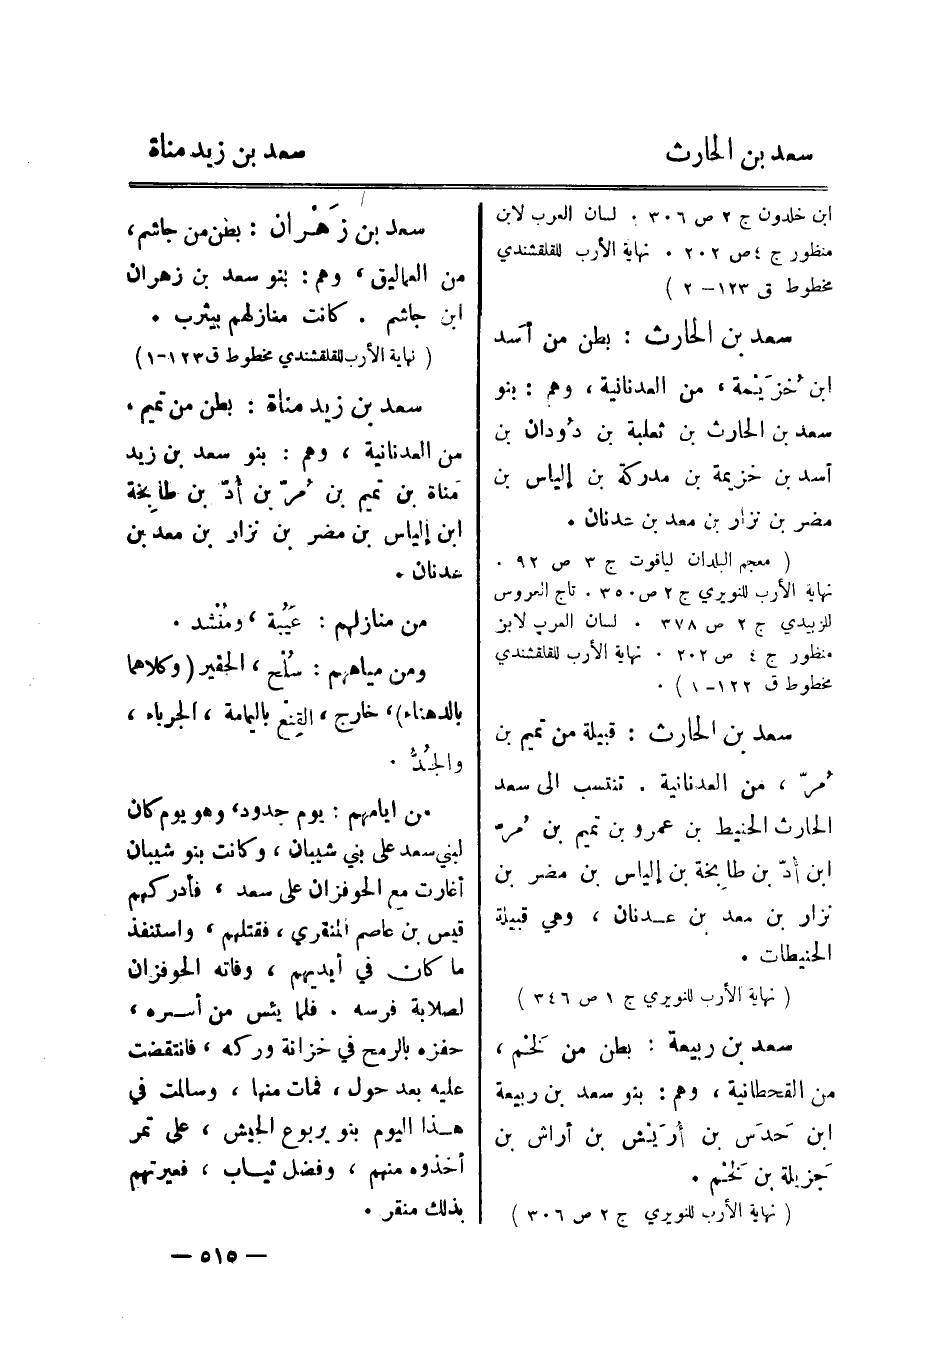 سعد بن الحارث
سعد بن زيد مناة
ابن خلدون ج ٢ ص ٣٠٦ . لسان العرب لابن
منظور ج ٤ ص ٢٠٢ . نهاية الأرب للقلقشندي
مخطوط ق ١٢٣ – ٢ )
سعد بن الحارث : بطن من أسد
ابن خُزَيْمة ، من العدنانية ، وهم : بنو
سعد بن الحارث بن ثعلبة بن دُودان بن
أسد بن خزيمة بن مدركة بن إلياس بن
مضر بن نزار بن معد بن عدنان .
( معجم البلدان لياقوت ج ٣ ص ٩٢ .
نهاية الأرب للنويري ج ٢ ص ٣٥٠ . تاج العروس
للزبيدي ج ٢ ص ٣٧٨ . لسان العرب لابن
منظور ج ٤ ص ٢٠٢ . نهاية الأرب للقلقشندي
مخطوط ق ١٢٢ – ١ ) .
سعد بن الحارث : قبيلة من تميم بن
مُرّ ، من العدنانية . تنتسب الى سعد
الحارث الحنيط بن عمرو بن تميم بن مُرّ
ابن أُدّ بن طابِخة بن إلياس بن مضر بن
نزار بن معد بن عدنان ، وهي قبيلة
الحنيطات .
( نهاية الأرب للنويري ج ١ ص ٣٤٦ )
سعد بن ربيعة : بطن من لَخْم ،
من القحطانية ، وهم : بنو سعد بن ربيعة
ابن حَدَس بن أُرَيْش بن أراش بن
جَزيلة بن لَخْم .
( نهاية الأرب للنويري ج ٢ ص ٣٠٦ )
سعد بن زَهْران : بطن من جاشم ،
من العماليق ، وهم : بنو سعد بن زهران
ابن جاشم . كانت منازلهم بيثرب .
( نهاية الأرب للقلقشندي مخطوط ق ١٢٣–١ )
سعد بن زيد مناة : بطن من تميم ،
من العدنانية ، وهم : بنو سعد بن زيد
مَناة بن تميم بن مُرّ بن أُدّ بن طابِخة
ابن إلياس بن مضر بن نزار بن معد بن
عدنان .
من منازلهم : عَيْبة ، ومُنْشد .
ومن مياههم : سُلُح ، الحفير ( وكلاهما
بالدهناء ) ، خارج ، القِنْع باليمامة ، الجرباء ،
والجُدُّ .
من ايامهم : يوم جدود ، وهو يوم كان
لبني سعد على بني شيبان ، وكانت بنو شيبان
أغارت مع الحوفزان على سعد ، فأدركهم
قيس بن عاصم المنقري ، فقتلهم ، واستنفذ
ما كان في أيديهم ، وفاته الحوفزان
لصلابة فرسه . فلما يئس من أسره ،
حفزه بالرمح في خزانة وركه ، فانتقضت
عليه بعد حول ، فمات منها ، وسالمت في
هذا اليوم بنو يربوع الجيش ، على تمر
أخذوه منهم ، وفضل ثياب ، فعيرتهم
بذلك منقر .
— ٥١٥ —